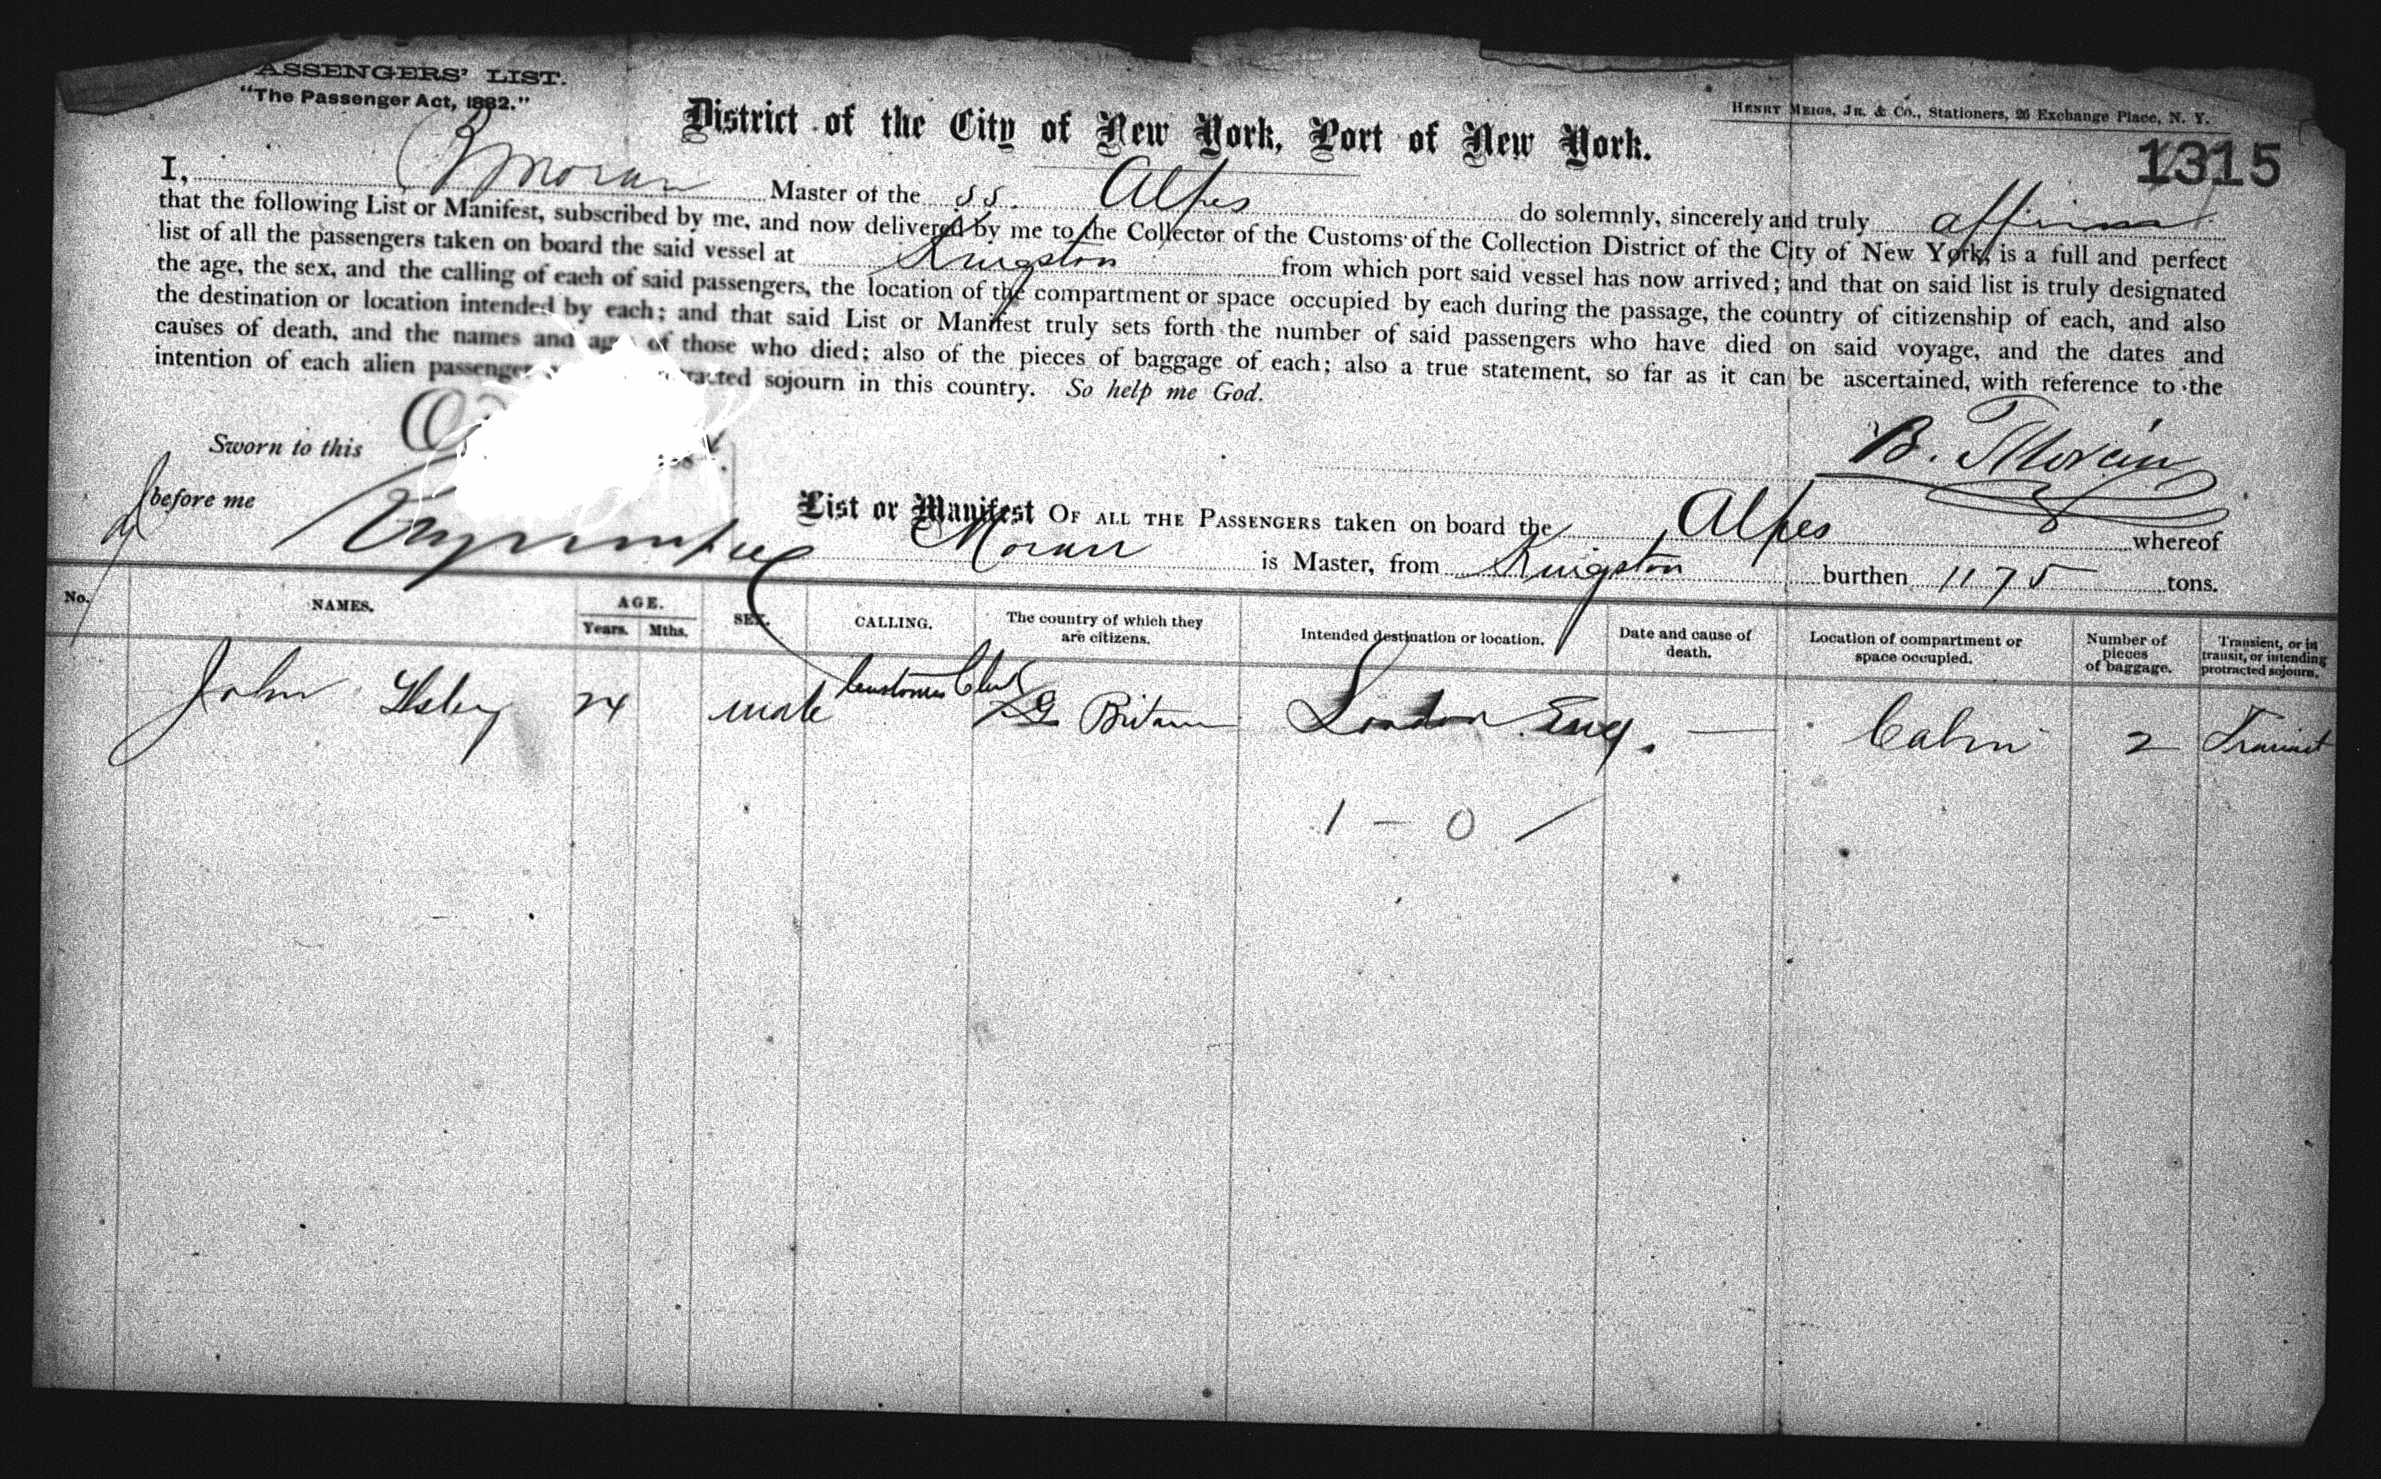 ASSENGERS' LIST.
"The Passenger Act, 1882."
HENRY MEIGS, JR. & CO., Stationers, 26 Exchange Place, N. Y.
District of the City of New York, Port of New York.
1315
I, B Moran Master of the SS. Alpes do solemnly, sincerely and truly affirm
that the following List or Manifest, subscribed by me, and now delivered by me to the Collector of the Customs of the Collection District of the City of New York, is a full and perfect
list of all the passengers taken on board the said vessel at Kingston from which port said vessel has now arrived; and that on said list is truly designated
the age, the sex, and the calling of each of said passengers, the location of the compartment or space occupied by each during the passage, the country of citizenship of each, and also
the destination or location intended by each; and that said List or Manifest truly sets forth the number of said passengers who have died on said voyage, and the dates and
causes of death, and the names and ages of those who died; also of the pieces of baggage of each; also a true statement, so far as it can be ascertained, with reference to the
intention of each alien passenger sojourn in this country. So help me God.
B. Moran
Sworn to this
before me
List or Manifest OF ALL THE PASSENGERS taken on board the Alpes whereof
Moran is Master, from Kingston burthen 1175 tons.
No. NAMES. AGE. Years. Mths. SEX. CALLING. The country of which they are citizens. Intended destination or location. Date and cause of death. Location of compartment or space occupied. Number of pieces of baggage. Transient, or in transit, or intending protracted sojourn.
John 24 male Customs Clerk G Britain London Eng. — Cabin 2 Transit
1 — 0 /